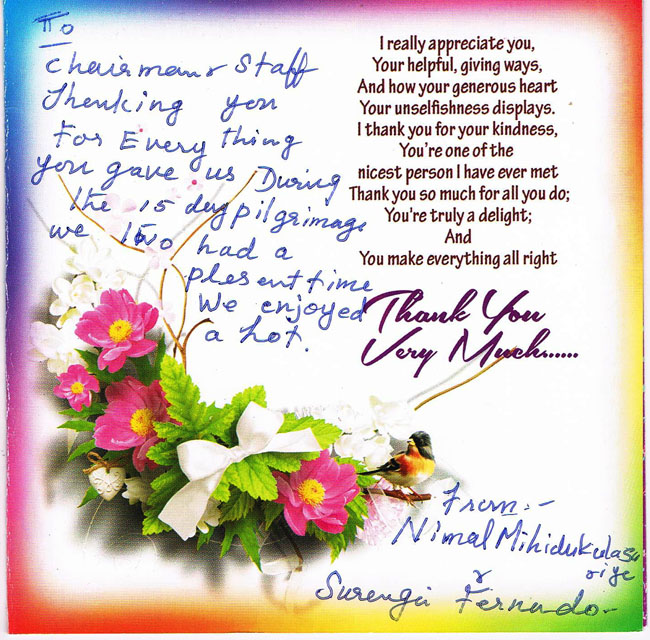 To
Chairman & Staff
Thenking you
For Every thing
you gave us During
the 15 day pilgrimage
we two had a
plesent time
We enjoyed
a Lot.
I really appreciate you,
Your helpful, giving ways,
And how your generous heart
Your unselfishness displays.
I thank you for your kindness,
You're one of the
nicest person I have ever met
Thank you so much for all you do;
You're truly a delight;
And
You make everything all right
Thank You
Very Much......
From:-
Nimal Mihidukulasu
riye
&
Surengi Fernado-